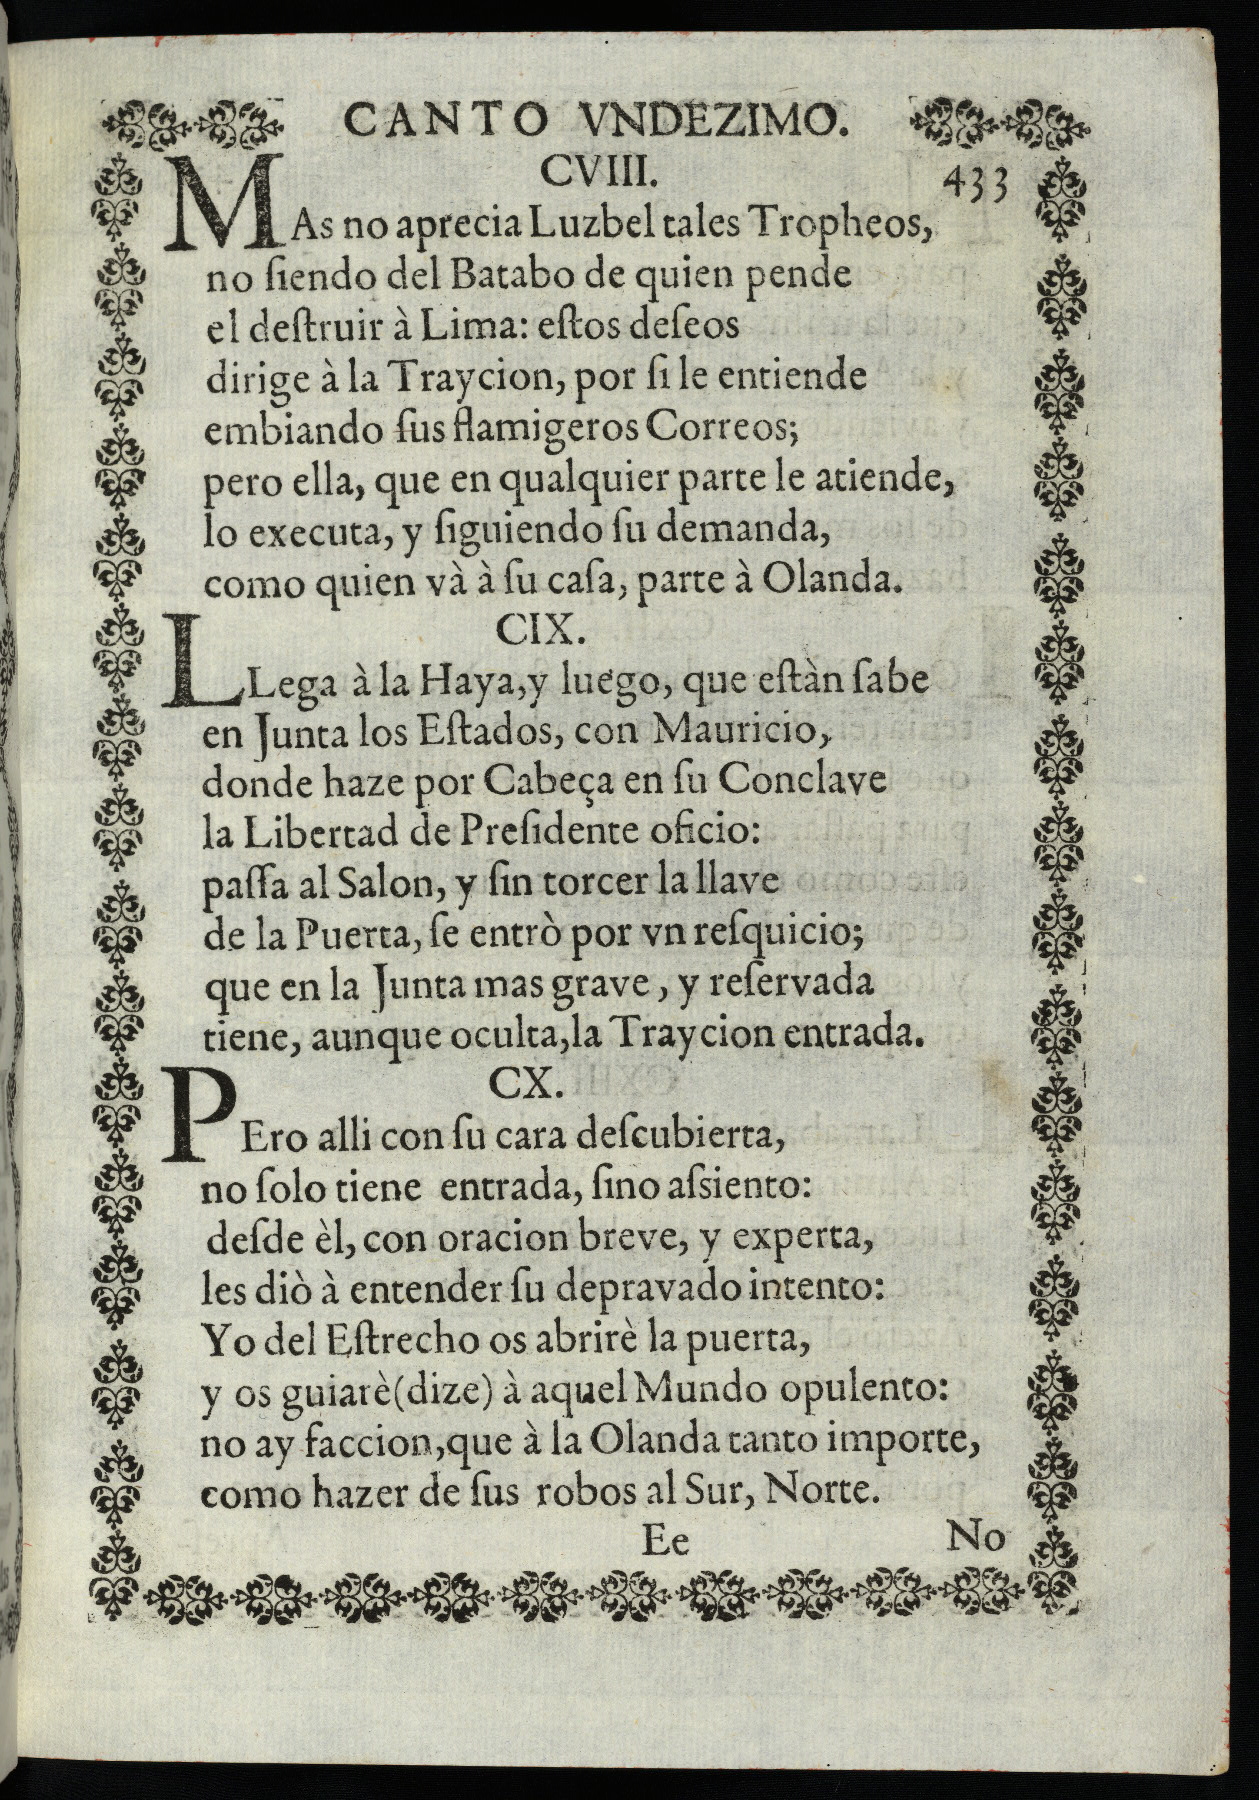 CANTO VNDEZIMO.
CVIII.
433
MAs no aprecia Luzbel tales Tropheos,
no ſiendo del Batabo de quien pende
el deſtruir à Lima: eſtos deſeos
dirige à la Traycion, por ſi le entiende
embiando ſus flamigeros Correos;
pero ella, que en qualquier parte le atiende,
lo executa, y ſiguiendo ſu demanda,
como quien và à ſu caſa, parte à Olanda.
CIX.
LLega à la Haya, y luego, que eſtàn ſabe
en Junta los Eſtados, con Mauricio,
donde haze por Cabeça en ſu Conclave
la Libertad de Preſidente oficio:
paſſa al Salon, y ſin torcer la llave
de la Puerta, ſe entrò por vn reſquicio;
que en la Junta mas grave, y reſervada
tiene, aunque oculta, la Traycion entrada.
CX.
PEro alli con ſu cara deſcubierta,
no ſolo tiene entrada, ſino aſsiento:
deſde èl, con oracion breve, y experta,
les diò à entender ſu depravado intento:
Yo del Eſtrecho os abrirè la puerta,
y os guiarè (dize) à aquel Mundo opulento:
no ay faccion, que à la Olanda tanto importe,
como hazer de ſus robos al Sur, Norte.
Ee
No